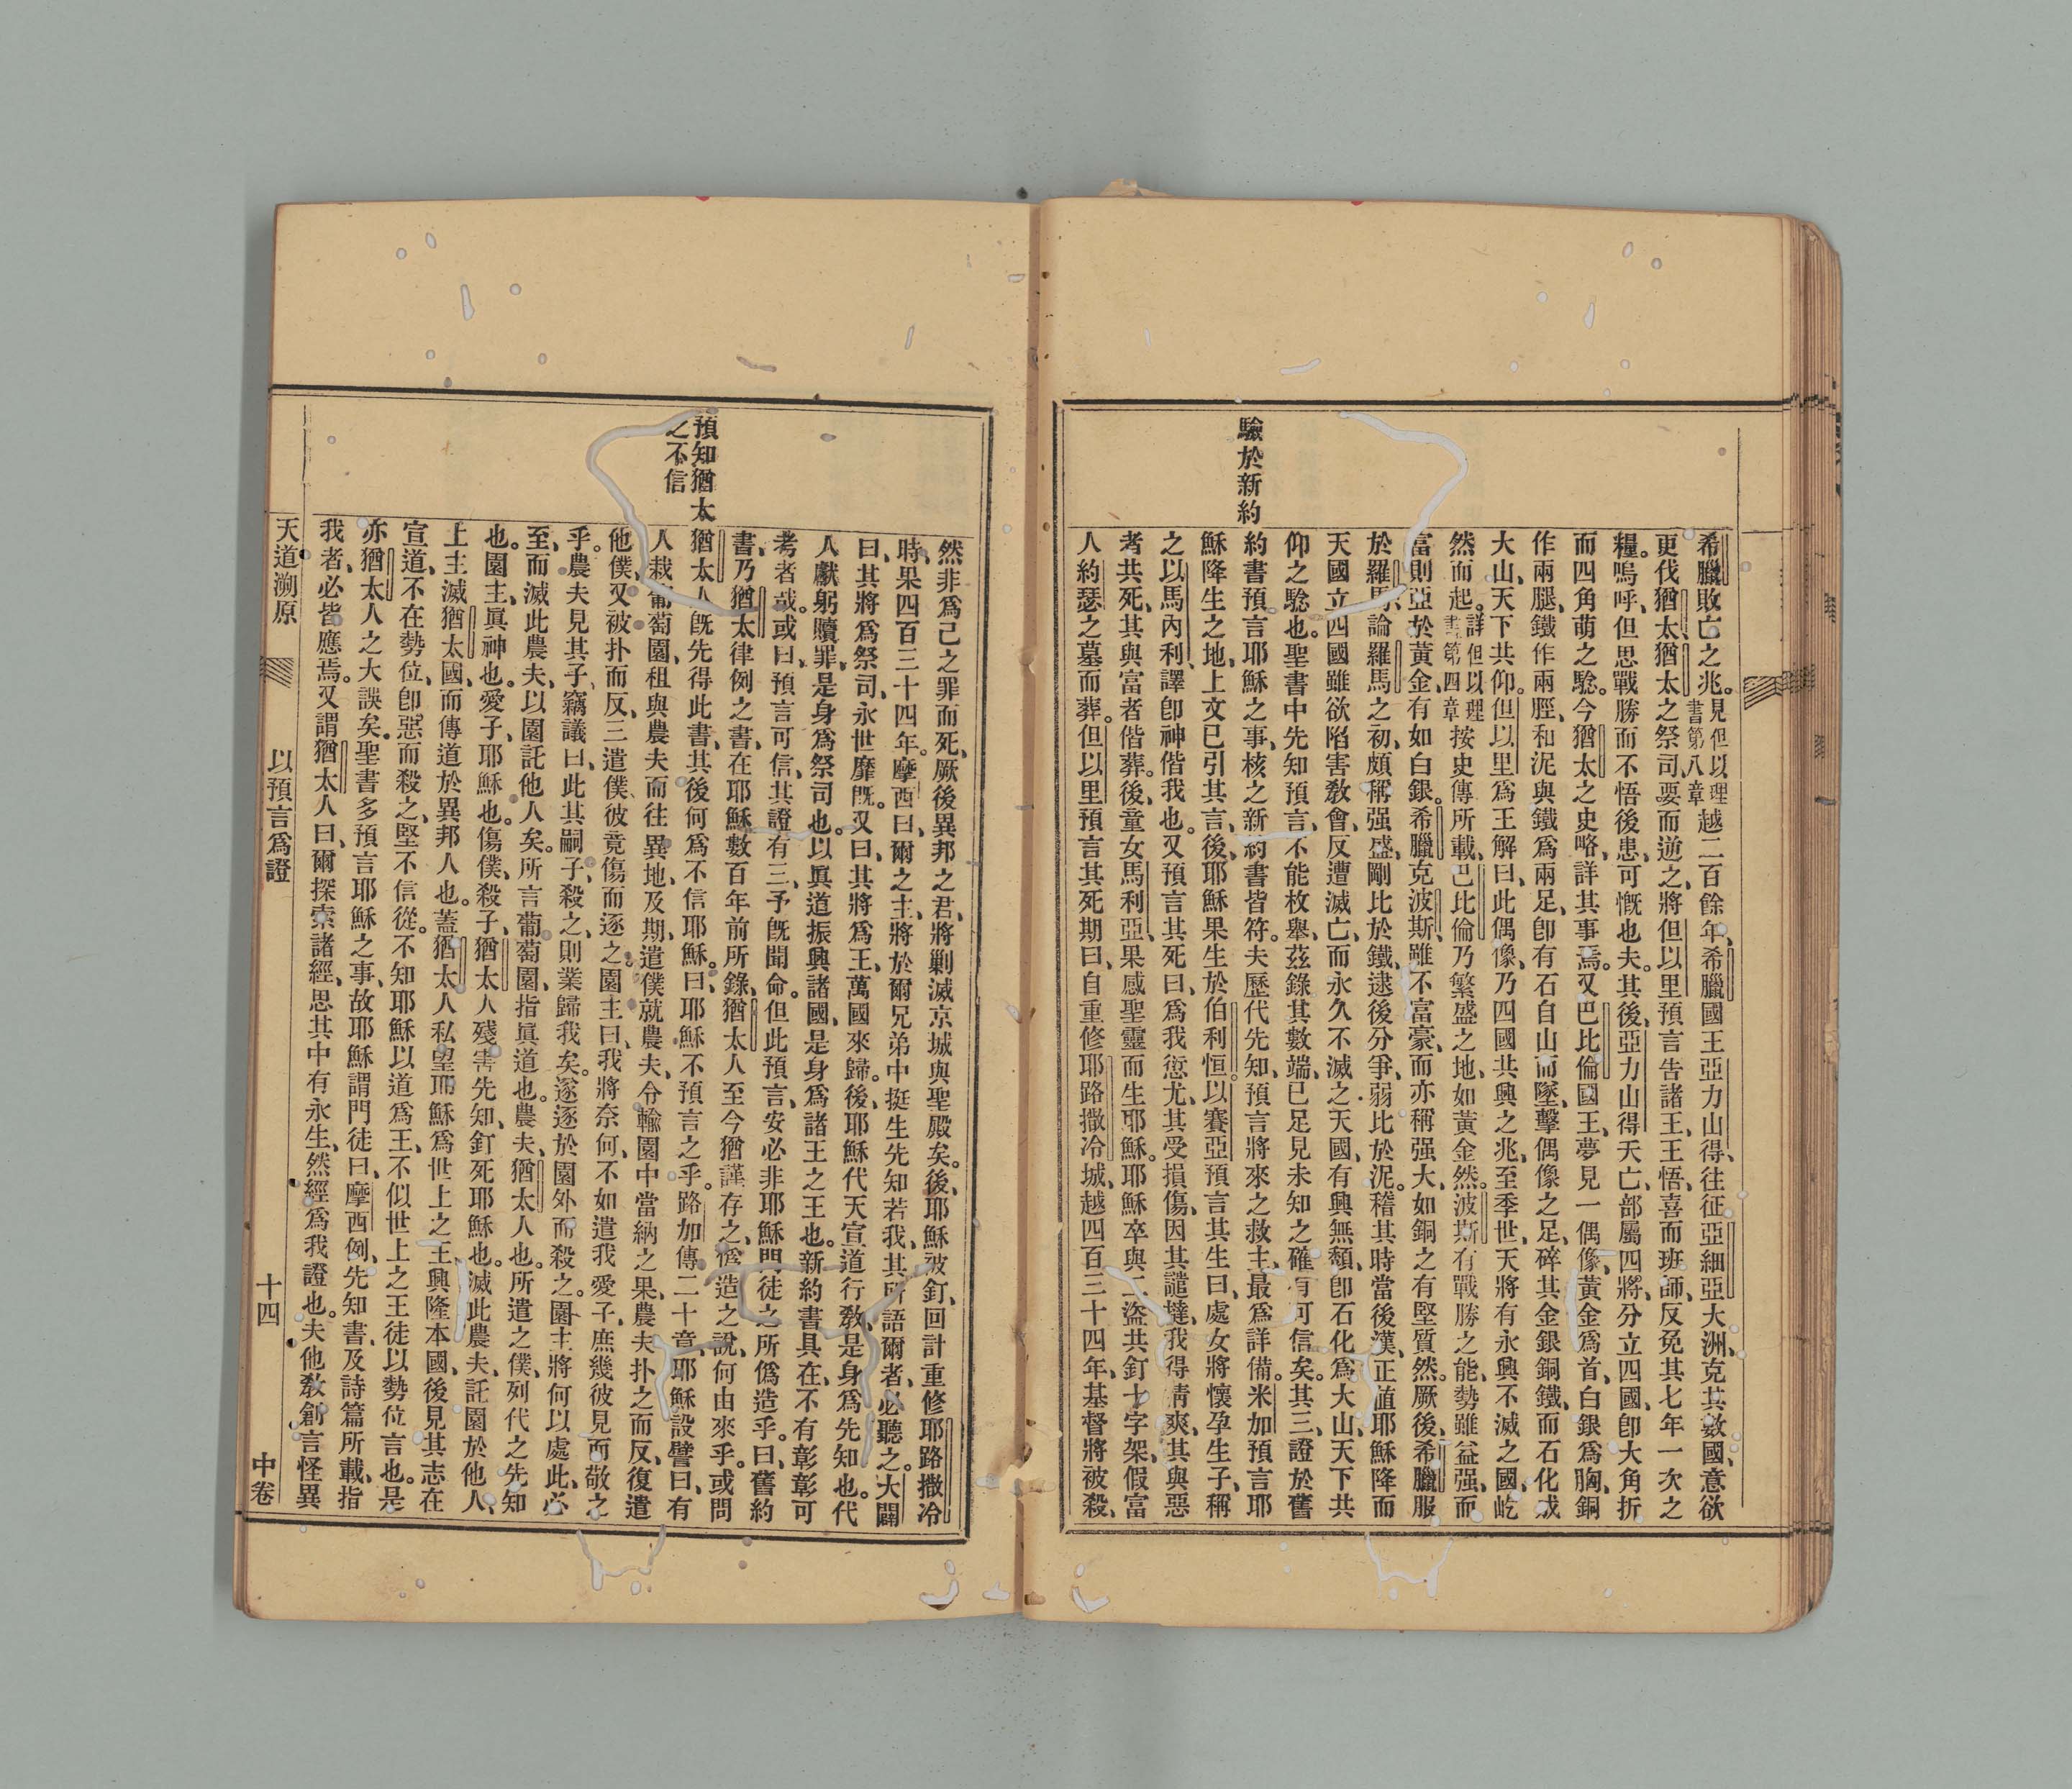 希臘敗亡之兆。見但以理書第八章越二百餘年、希臘國王亞力山得、往征亞細亞大洲、克其數國、意欲
更伐猶太、猶太之祭司、要而逆之、將但以里預言告諸王、王悟、喜而班師、反免其七年一次之
糧。嗚呼、但思戰勝而不悟後患、可慨也夫。其後亞力山得夭亡、部屬四將、分立四國、卽大角折
而四角萌之騐。今猶太之史略、詳其事焉。又巴比倫國王、夢見一偶像、黃金爲首、白銀爲胸、銅
作兩腿、鐵作兩脛、和泥與鐵爲兩足、卽有石自山而墜、擊偶像之足、碎其金銀銅鐵、而石化成
大山、天下共仰。但以里爲王解曰、此偶像、乃四國共興之兆、至季世、天將有永興不滅之國、屹
然而起。詳但以理書第四章按史傳所載、巴比倫乃繁盛之地、如黃金然。波斯有戰勝之能、勢雖益强、而
富則亞於黃金、有如白銀。希臘克波斯、雖不富豪、而亦稱强大、如銅之有堅質然。厥後、希臘服
於羅馬、論羅馬之初、頗稱强盛、剛比於鐵、逮後分爭、弱比於泥。稽其時當後漢、正値耶穌降而
天國立、四國雖欲陷害敎會、反遭滅亡、而永久不滅之天國、有興無頽、卽石化爲大山、天下共
仰之騐也。聖書中先知預言、不能枚舉、茲錄其數端、已足見未知之確有可信矣。其三、證於舊
驗於新約
約書預言耶穌之事、核之新約書皆符。夫歷代先知、預言將來之救主、最爲詳備。米加預言耶
穌降生之地、上文已引其言、後、耶穌果生於伯利恒。以賽亞預言其生曰、處女將懷孕生子、稱
之以馬內利、譯卽神偕我也。又預言其死曰、爲我愆尤、其受損傷、因其譴撻、我得清爽、其與惡
者共死、其與富者偕葬。後、童女馬利亞、果感聖靈而生耶穌。耶穌卒與二盜共釘十字架、假富
人約瑟之墓而葬。但以里預言其死期曰、自重修耶路撒冷城、越四百三十四年、基督將被殺、
然非爲己之罪而死、厥後異邦之君、將剿滅京城與聖殿矣。後、耶穌被釘、回計重修耶路撒冷
時、果四百三十四年。摩西曰、爾之主、將於爾兄弟中挺生先知若我、其所語爾者、必聽之。大闢
曰、其將爲祭司、永世靡旣。又曰、其將爲王、萬國來歸。後、耶穌代天宣道行敎、是身爲先知也。代
人獻躬贖罪、是身爲祭司也。以眞道振興諸國、是身爲諸王之王也。新約書具在、不有彰彰可
考者或。或曰、預言可信、其證有三、予旣聞命。但此預言、安必非耶穌門徒之所僞造乎。曰、舊約
書、乃猶太律例之書、在耶穌數百年前所錄、猶太人至今猶謹存之、僞造之說、何由來乎。或問
預知猶太之不信
猶太人旣先得此書、其後何爲不信耶穌。曰、耶穌不預言之乎。路加傳二十章、耶穌設譬曰、有
人栽葡萄園、租與農夫而往異地、及期、遣僕就農夫、令輸園中當納之果、農夫扑之而反、復遣
他僕、又被扑而反、三遣僕、彼竟傷而逐之。園主曰、我將奈何、不如遣我愛子、庶幾彼見而敬之
乎。農夫見其子、竊議曰、此其嗣子、殺之、則業歸我矣。遂逐於園外而殺之。園主將何以處此、必
至而滅此農夫、以園託他人矣。所言葡萄園、指眞道也。農夫、猶太人也。所遣之僕、列代之先知
也。園主、眞神也。愛子、耶穌也。傷僕、殺子、猶太人殘害先知、釘死耶穌也。滅此農夫、託園於他人、
上主滅猶太國、而傳道於異邦人也。蓋猶太人私望耶穌爲世上之王、興隆本國、後見其志在
宣道、不在勢位、卽惡而殺之、堅不信從。不知耶穌以道爲王、不似世上之王徒以勢位言也。是
亦猶太人之大誤矣。聖書多預言耶穌之事、故耶穌謂門徒曰、摩西例、先知書、及詩篇所載、指
我者、必皆應焉。又謂猶太人曰、爾探索諸經、思其中有永生、然經爲我證也。夫他敎創言怪異
天道溯原
以預言爲證
十四
中卷